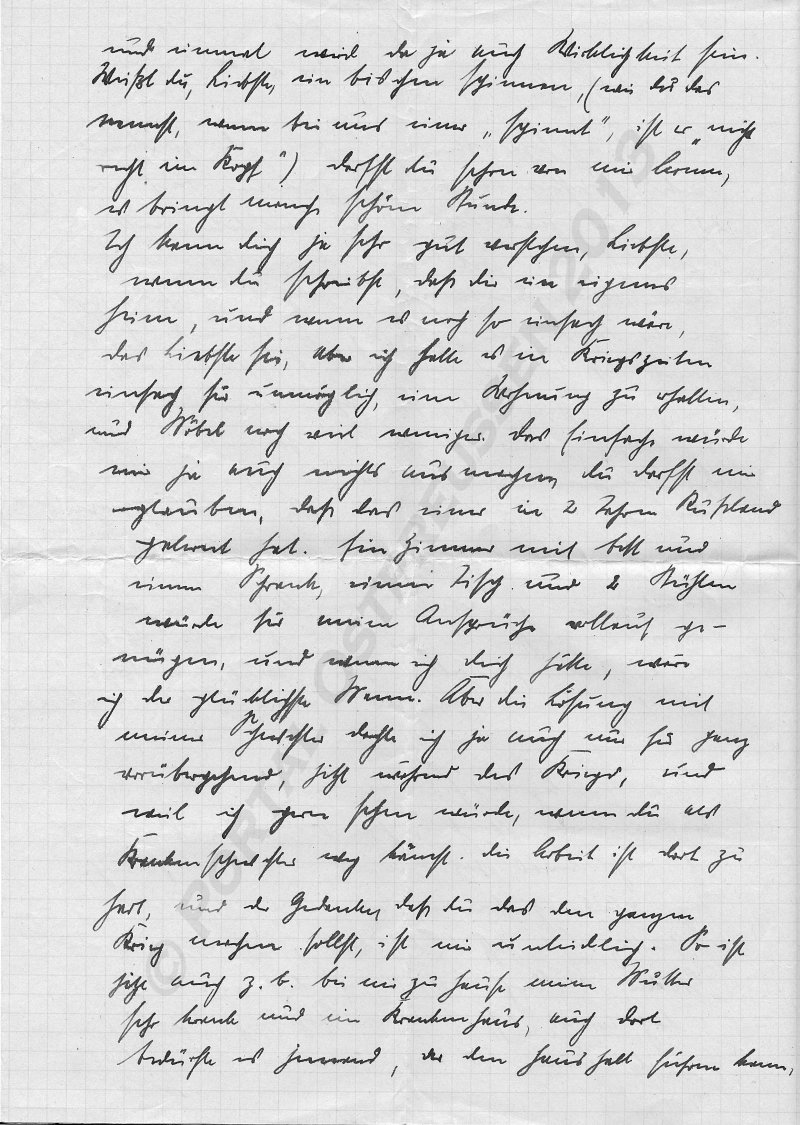 und einmal wird da ja auch Wirklichkeit sein.
Weißt du, Liebste, ein bischen spinnen, (wie du das
nennst, wenn bei uns einer „spinnt“, ist er „nicht
recht im Kopf“) darfst du schon von mir lernen,
es bringt manche schöne Stunde.
Ich kann dich ja sehr gut verstehen, Liebste,
wenn du schreibst, daß dir ein eigenes
Heim, und wenn es noch so einfach wäre,
das Liebste sei, aber ich halte es in Kriegszeiten
einfach für unmöglich, eine Wohnung zu erhalten,
und Möbel noch viel weniger. Das Einfache würde
mir ja auch nichts ausmachen, du darfst mir
glauben, daß das einer in 2 Jahren Rußland
gelernt hat. Ein Zimmer mit Bett und
einem Schrank, einem Tisch und 2 Stühlen
würde für meine Ansprüche vollauf ge-
nügen, und wenn ich dich hätte, wäre
ich der glücklichste Mann. Aber die Lösung mit
meiner Schwester dachte ich ja auch nur für ganz
vorübergehend, jetzt während des Krieges, und
weil ich gern sehen würde, wenn du als
Krankenschwester weg kämst. Die Arbeit ist dort zu
hart, und der Gedanke, daß du das den ganzen
Krieg machen sollst, ist mir unleidlich. So ist
jetzt auch z.b. bei mir zu hause meine Mutter
sehr krank und im Krankenhaus, auch dort
bedürfte es jemand, der den Haushalt führen kann,
© PORTAL OSTPREUSSEN 2013